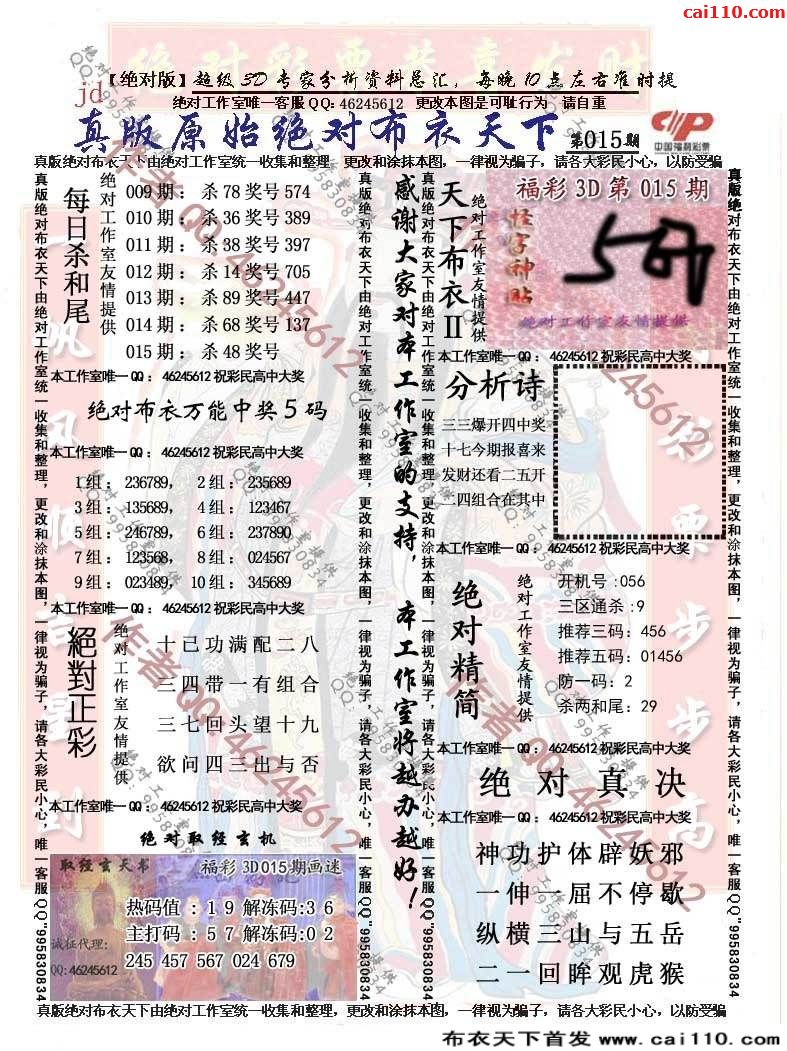 cai110.com
【绝对版】超级3D专家分析资料总汇，每晚10点左右准时提
jd
绝对工作室唯一客服QQ:46245612 更改本图是可耻行为 请自重
真版原始绝对布衣天下 第015期
中国福利彩票
真版绝对布衣天下由绝对工作室统一收集和整理，更改和涂抹本图，一律视为骗子，请各大彩民小心，以防受骗
每日杀和尾
绝对工作室友情提供
009期：杀78奖号574
010期：杀36奖号389
011期：杀38奖号397
012期：杀14奖号705
013期：杀89奖号447
014期：杀68奖号137
015期：杀48奖号
本工作室唯一QQ：46245612祝彩民高中大奖
绝对布衣万能中奖5码
本工作室唯一QQ：46245612祝彩民高中大奖
1组：236789， 2组：235689
3组：135689， 4组：123467
5组：246789， 6组：237890
7组：123568， 8组：024567
9组：023489， 10组：345689
本工作室唯一QQ：46245612祝彩民高中大奖
絕對正彩
绝对工作室友情提供
十己功满配二八
三四带一有组合
三七回头望十九
欲问四三出与否
本工作室唯一QQ：46245612祝彩民高中大奖
绝对取经玄机
取经玄天书 福彩3D015期画迷
热码值：19解冻码：36
主打码：57解冻码：02
245 457 567 024 679
诚征代理：
QQ:46245612
感谢大家对本工作室的支持，本工作室将越办越好！
天下布衣II
绝对工作室友情提供
福彩3D第015期
怪字神贴
绝对工作室友情提供
本工作室唯一QQ：46245612祝彩民高中大奖
分析诗
三三爆开四中奖
十七今期报喜来
发财还看二五开
二四组合在其中
本工作室唯一QQ：46245612祝彩民高中大奖
绝对精简
绝对工作室友情提供
开机号:056
三区通杀:9
推荐三码：456
推荐五码：01456
防一码：2
杀两和尾：29
本工作室唯一QQ：46245612祝彩民高中大奖
绝对真决
本工作室唯一QQ：46245612祝彩民高中大奖
神功护体辟妖邪
一伸一屈不停歇
纵横三山与五岳
二一回眸观虎猴
真版绝对布衣天下由绝对工作室统一收集和整理，更改和涂抹本图，一律视为骗子，请各大彩民小心，唯一客服QQ"995830834
真版绝对布衣天下由绝对工作室统一收集和整理，更改和涂抹本图，一律视为骗子，请各大彩民小心，唯一客服QQ"995830834
真版绝对布衣天下由绝对工作室统一收集和整理，更改和涂抹本图，一律视为骗子，请各大彩民小心，唯一客服QQ"995830834
真版绝对布衣天下由绝对工作室统一收集和整理，更改和涂抹本图，一律视为骗子，请各大彩民小心，唯一客服QQ"995830834
作者QQ:46245612
绝对工作室提供
QQ:995830834
真版绝对布衣天下由绝对工作室统一收集和整理，更改和涂抹本图，一律视为骗子，请各大彩民小心，以防受骗
布衣天下首发 www.cai110.com